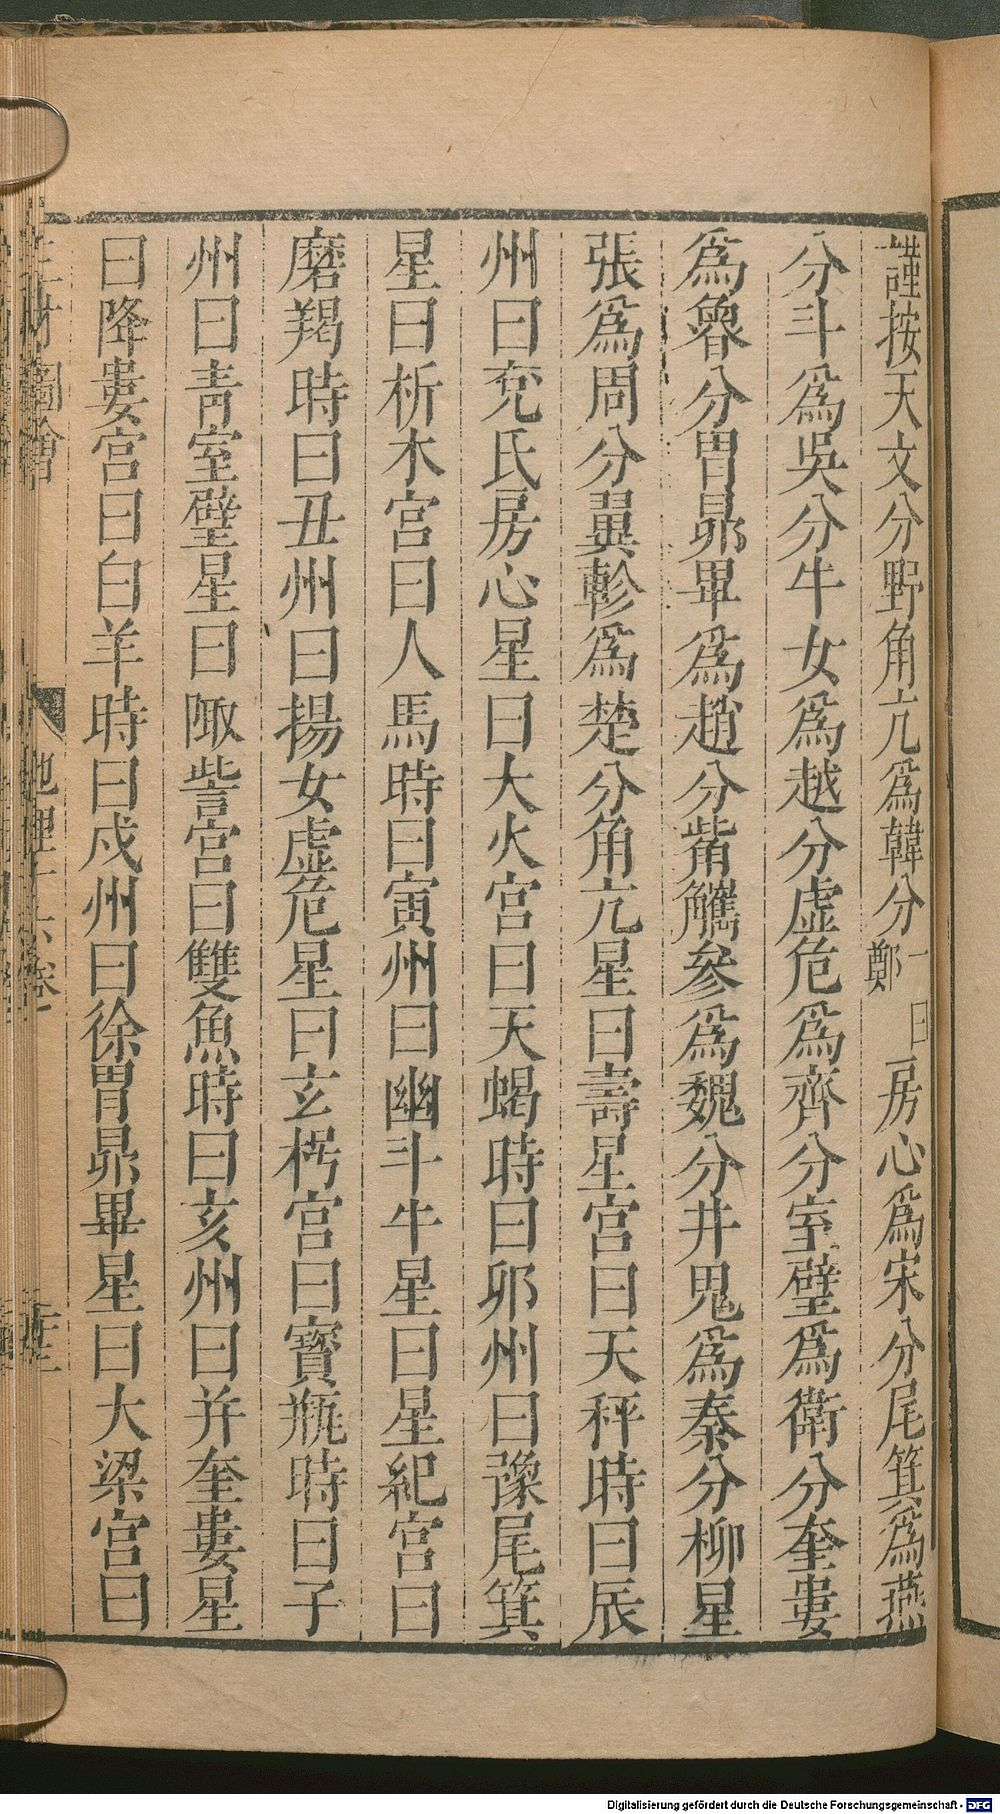 謹按天文分野角亢爲韓分一曰鄭房心爲宋分尾箕爲燕
分斗爲吳分牛女爲越分虛危爲齊分室壁爲衛分奎婁
爲魯分胃昴畢爲趙分觜觿參爲魏分井鬼爲秦分柳星
張爲周分翼軫爲楚分角亢星曰壽星宮曰天秤時曰辰
州曰兖氐房心星曰大火宮曰天蝎時曰卯州曰豫尾箕
星曰析木宮曰人馬時曰寅州曰幽斗牛星曰星紀宮曰
磨羯時曰丑州曰揚女虛危星曰玄枵宮曰寶瓶時曰子
州曰靑室壁星曰娵訾宮曰雙魚時曰亥州曰并奎婁星
曰降婁宮曰白羊時曰戌州曰徐胃昴畢星曰大梁宮曰
三才圖會
地理十六卷
Digitalisierung gefördert durch die Deutsche Forschungsgemeinschaft - DFG